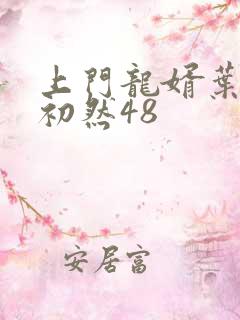 上門龍婿葉
初然48
安居富